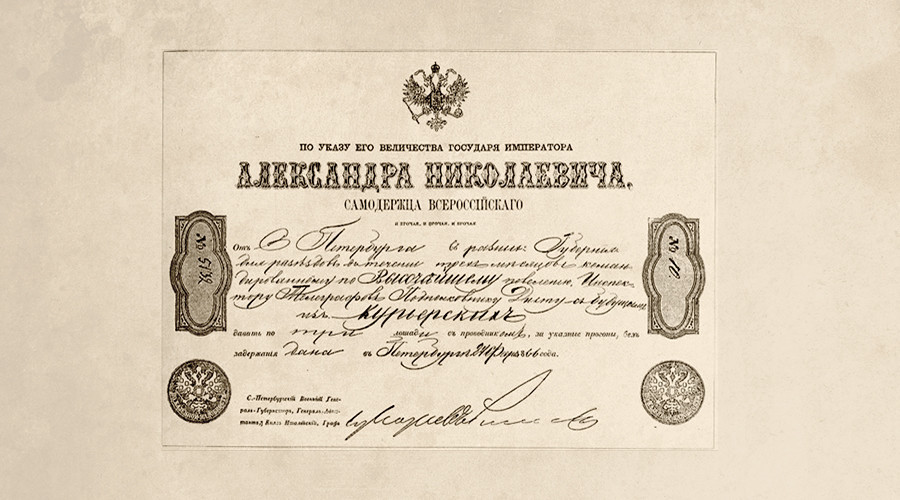 ПО УКАЗУ ЕГО ВЕЛИЧЕСТВА ГОСУДАРЯ ИМПЕРАТОРА
АЛЕКСАНДРА НИКОЛАЕВИЧА,
САМОДЕРЖЦА ВСЕРОССІЙСКАГО
И ПРОЧАЯ, И ПРОЧАЯ, И ПРОЧАЯ
Отъ С Петербурга въ разныя Губерніи
для разъѣздовъ въ теченіи трехъ мѣсяцовъ коман
дированному по Высочайшему повелѣнію, Инспек-
тору Телеграфовъ Подполковнику съ будущимъ
изъ курьерскихъ
давать по три лошади съ проводникомъ, за указные прогоны, безъ
задержанія дана въ Петербургѣ 66 года.
С.-Петербургскій Военный Гене-
ралъ-Губернаторъ, Генералъ-Адъю-
тантъ, Князь Италійскій, Графъ
№
№ 10